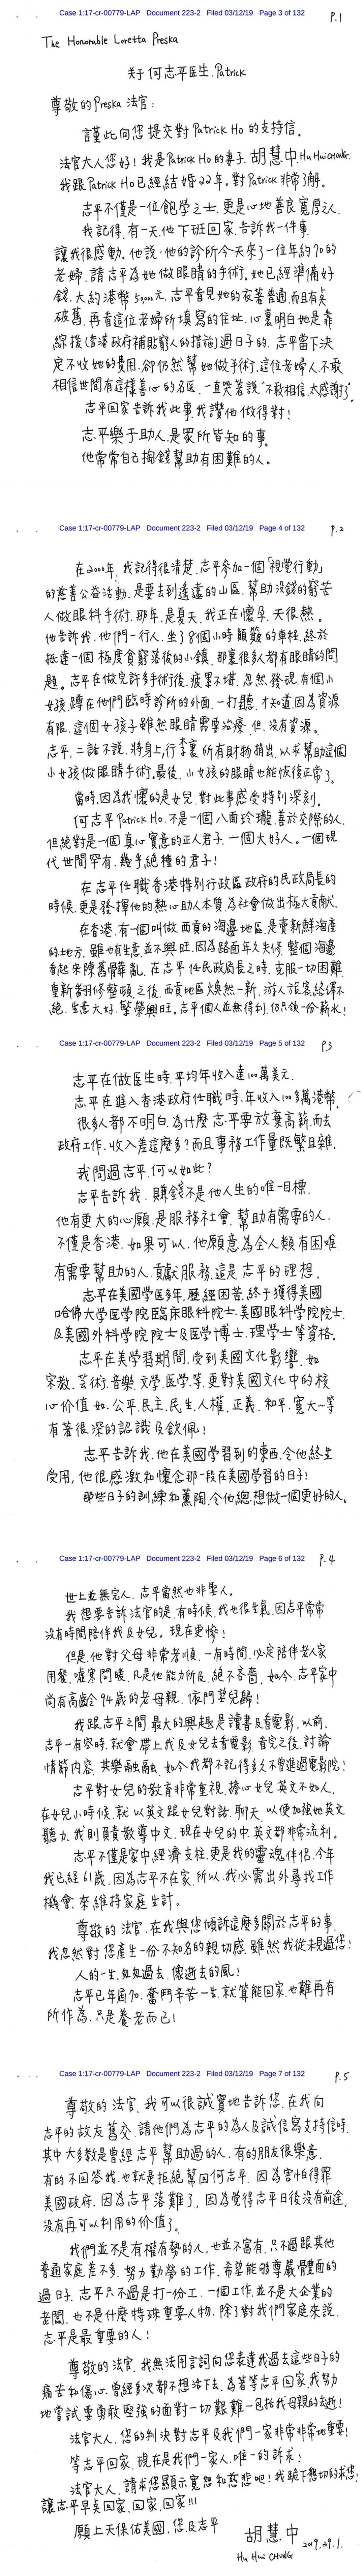 Case 1:17-cr-00779-LAP Document 223-2 Filed 03/12/19 Page 3 of 132
P.1
The Honorable Loretta Preska
关于何志平医生. Patrick
尊敬的Preska 法官:
謹此向您提交對Patrick Ho的支持信。
法官大人您好!我是Patrick Ho的妻子.胡慧中.Hu Hui CHUNG.
我跟Patrick Ho已經結婚22年。對Patrick非常了解。
志平不僅是一位飽學之士.更是心地善良寬厚之人.
我記得.有一天.他下班回家.告訴我一件事.
讓我很感動。他說.他的診所今天來了一位年約70的
老婦.請志平為她做眼睛的手術.她已經準備好
錢.大約港幣50000元.志平看見她的衣著普通.而且有点
破舊.再看這位老婦所填寫的住址.心裏明白她是靠
綜援(香港政府補貼窮人的措施)過日子的.志平當下決
定不收她的費用.卻仍然幫她做手術.這位老婦人.不敢
相信世間有這樣善心的名医.一直哭著說"不敢相信.太感謝了".
志平回家告訴我此事.我讚他做得對!
志平樂于助人.是眾所皆知的事.
他常常自己掏錢幫助有困難的人。
Case 1:17-cr-00779-LAP Document 223-2 Filed 03/12/19 Page 4 of 132
P.2
在2000年.我記得很清楚.志平參加一個「視覺行動」
的慈善公益活動.是要去到遙遠的山區.幫助沒錢的窮苦
人做眼科手術.那年.是夏天.我正在懷孕.天很熱.
他告訴我.他們一行人.坐了8個小時顛簸的車程.終於
抵達一個極度貧窮落後的小鎮.那裏很多人都有眼睛的問
題。志平在做完許多手術後.疲累不堪.忽然發現.有個小
女孩.蹲在他們臨時診所的外面.一打聽.才知道.因為資源
有限.這個女孩子雖然眼睛需要治療.但.沒有資源。
志平.二話不說.將身上.行李裏所有財物捐出.以求幫助這個
小女孩做眼睛手術.最後.小女孩的眼睛也能恢復正常了.
當時.因為我懷的是女兒.對此事感受特別深刻.
何志平Patrick Ho.不是一個八面玲瓏.善於交際的人.
但絕對是一個真心實意的正人君子.一個大好人。一個現
代世間罕有.幾乎絕種的君子!
在志平仕職香港特別行政區政府的民政局長的
時候.更是發揮他的熱心助人本質.為社會做出極大貢獻.
在香港.有一個叫做西貢的海邊地區.是賣新鮮海產
的地方.雖也有生意.並不興旺.因為路面年久失修.整個海邊
看起來陳舊髒亂.在志平任民政局長之時.克服一切困難.
重新翻修整頓.之後.西貢地區大煥然一新.游人旅客絡繹不
絕.生意大好.繁榮興旺。志平個人並無得利.仍只領一份薪水!
Case 1:17-cr-00779-LAP Document 223-2 Filed 03/12/19 Page 5 of 132
P.3
志平在做医生時.平均年收入達100萬美元.
志平在進入香港政府任職時.年收入100多萬港幣.
很多人都不明白.為什麼志平要放棄高薪.而去
政府工作.收入差這麼多?而且事務工作量既繁且雜.
我問過志平.何以如此?
志平告訴我.賺錢不是他人生的唯一目標.
他有更大的心願.是服務社會.幫助有需要的人.
不僅是香港.如果可以.他願意為全人類有困难
有需要幫助的人.貢獻服務.這是志平的理想.
志平在美國学医多年.歷經困苦.終于獲得美國
哈佛大学医学院臨床眼科院士.美國眼科学院院士.
及美國外科学院院士及医学博士.理学士等資格.
志平在美学習期間.受到美國文化影響.如
宗教、芸術.音樂.文学.医学等.更對美國文化中的核
心价值.如.公平.民主.民生.人權.正義.和平.寬大~等
有著很深的認識及欽佩!
志平告訴我.他在美國学習到的東西.令他終生
受用.他很感激和懷念那一段在美國学習的日子!
那些日子的訓練和薰陶.令他總想做一個更好的人.
Case 1:17-cr-00779-LAP Document 223-2 Filed 03/12/19 Page 6 of 132
P.4
世上並無完人.志平當然也非聖人.
我想要告訴法官的是.有時候.我也很生氣.因志平常常
沒有時間陪伴我及女兒。現在更慘!
但是.他對父母非常孝順.一有時間.必定陪伴老人家
用餐.噓寒問暖.凡是他能力所及.絕不吝嗇.如今.志平家中
尚有高齡94歲的老母親.依門望兒歸!
我跟志平之間最大的興趣是讀書及看電影.以前.
志平一有空時.就會帶上我及女兒去看電影.看完之後.討論
情節內容.其樂融融.如今我都不記得多久不曾進過電影院!
志平對女兒的教育非常重視.擔心女兒英文不如人.
在女兒小時候.就以英文跟女兒對話.聊天.以便加強她英文
聽力.我則負責教導中文.現在女兒的中.英文都非常流利。
志平不僅是家中經濟支柱.更是我的靈魂伴侶.今年
我已經61歲.因為志平不在家.所以.我必需出外尋找工作
機會.來維持家庭生計。
尊敬的法官.在我與您傾訴這麼多關於志平的事.
我忽然對您產生一份不知名的親切感.雖然我從未見過您!
人的一生.匆匆過去.像逝去的風!
志平已年屆70.奮鬥辛苦一生.就算能回家.也難再有
所作為.只是養老而已!
Case 1:17-cr-00779-LAP Document 223-2 Filed 03/12/19 Page 7 of 132
P.5
尊敬的法官.我可以很誠實地告訴您.在我向
志平的故友舊交.請他們為志平的為人及誠信寫支持信時.
其中大多數是曾經志平幫助過的人.有的朋友很樂意.
有的不回答我.也就是拒絕幫回何志平.因為害怕得罪
美國政府.因為志平落難了.因為覺得志平日後沒有前途.
沒有再可以利用的价值了。
我們並不是有權有勢的人.也並不富有.只不過跟其他
普通家庭差不多.努力勤勞的工作.希望能夠尊嚴體面的
過日子.志平只不過是打一份工.一個工作.並不是大企業的
老闆.也不是什麼特殊重要人物.除了對我們家庭來說.
志平是最重要的人!
尊敬的法官.我無法用言詞向您表達我過去這些日子的
痛苦和傷心.曾經多次都不想活下去.為著等志平回家.我努力
地嘗試要勇敢堅強的面對一切艱難~包括我母親的去逝!
法官大人.您的判決對志平及我們一家非常非常地重要!
等志平回家.現在是我們一家人.唯一的訴求!
法官大人.請求您顯示寬恕和慈悲吧!我跪下懇切的求您!
讓志平早点回家.回家.回家!!!
願上天保佑美國.您.及志平
胡慧中 2019.29.1.
Hu Hui CHUNG